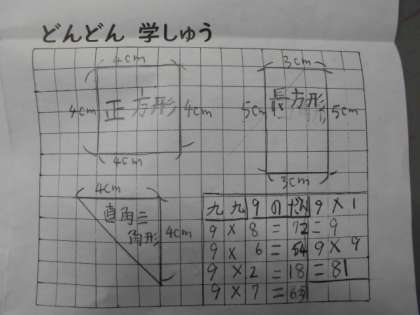 どんどん 学しゅう
4cm 3cm
4cm 正方形 4cm 5cm 長方形 5cm
4cm 3cm
4cm
直角三角形 4cm
九九9のだん 9×1
9×8=72 =9
9×6=54 9×9
9×2=18 =81
9×7=63